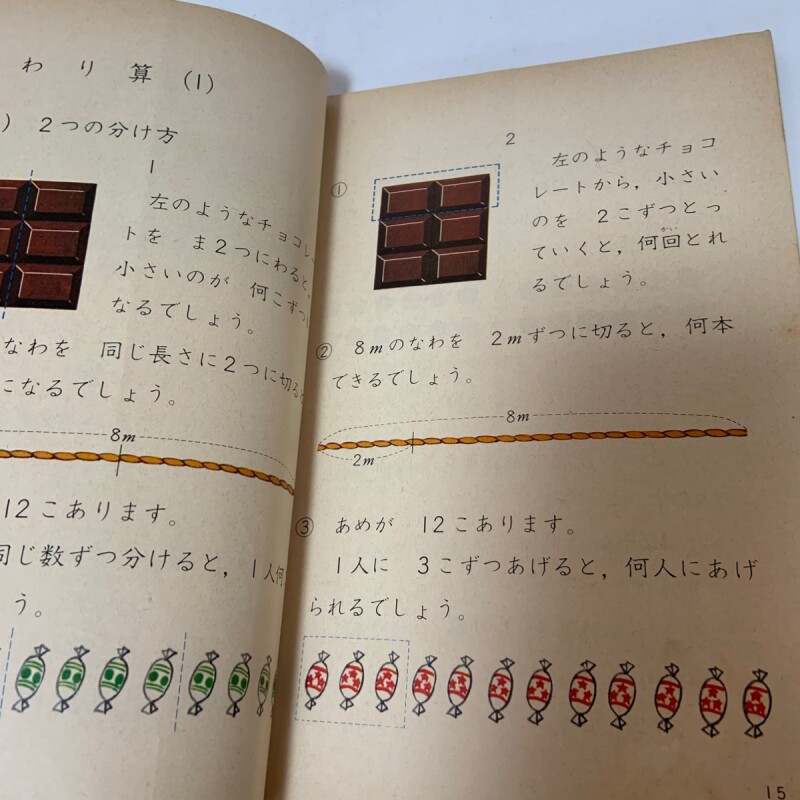 わり算 (1)
) 2つの分け方
1
左のようなチョコレ
トを ま2つにわると,
小さいのが 何こずつに
なるでしょう。
なわを 同じ長さに2つに切ると
になるでしょう。
8m
12こあります。
同じ数ずつ分けると, 1人何
う。
2
①
左のようなチョコ
レートから, 小さい
のを 2こずつとっ
かい
ていくと, 何回とれ
るでしょう。
② 8mのなわを 2mずつに切ると, 何本
できるでしょう。
8m
2m
③ あめが 12こあります。
1人に 3こずつあげると, 何人にあげ
られるでしょう。
15